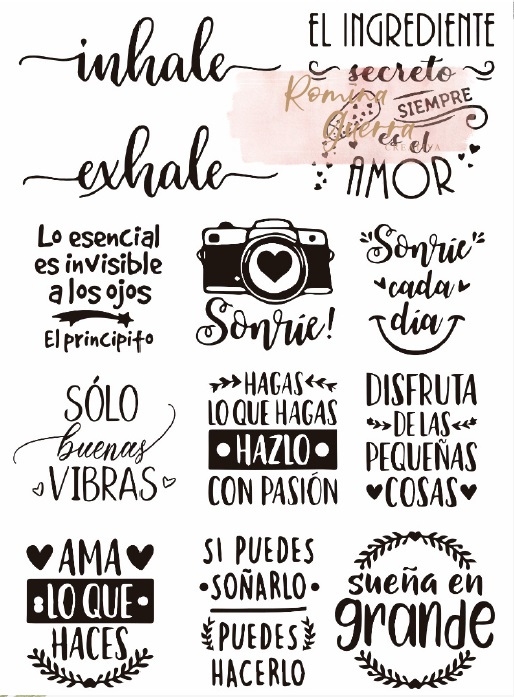 inhale
exhale
EL INGREDIENTE
secreto
SIEMPRE
es el
AMOR
Romina
Guerra
Lo esencial
es invisible
a los ojos
El principito
Sonríe!
"Sonríe"
cada
día
SÓLO
buenas
VIBRAS
HAGAS
LO QUE HAGAS
HAZLO
CON PASIÓN
DISFRUTA
DE LAS
PEQUEÑAS
COSAS
AMA
LO QUE
HACES
SI PUEDES
SOÑARLO
PUEDES
HACERLO
sueña en
grande